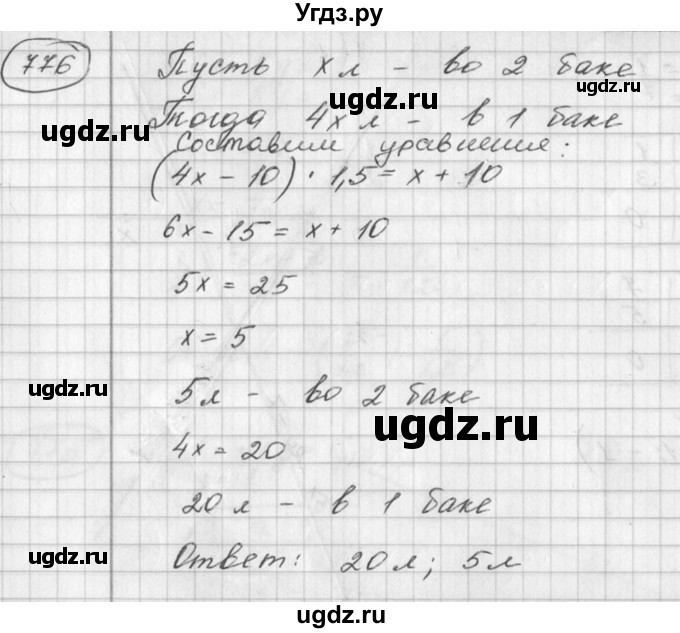 Угдз.ру
776
Пусть x л - во 2 баке
ugdz.ru ugdz.ru
Тогда 4x л - в 1 баке
Составим уравнения:
(4x - 10) · 1,5 = x + 10
6x - 15 = x + 10
5x = 25
x = 5
ugdz.ru
5 л - во 2 баке
ugdz.ru
4x = 20
20 л - в 1 баке
ugdz.ru
Ответ: 20 л; 5 л
ugdz.ru